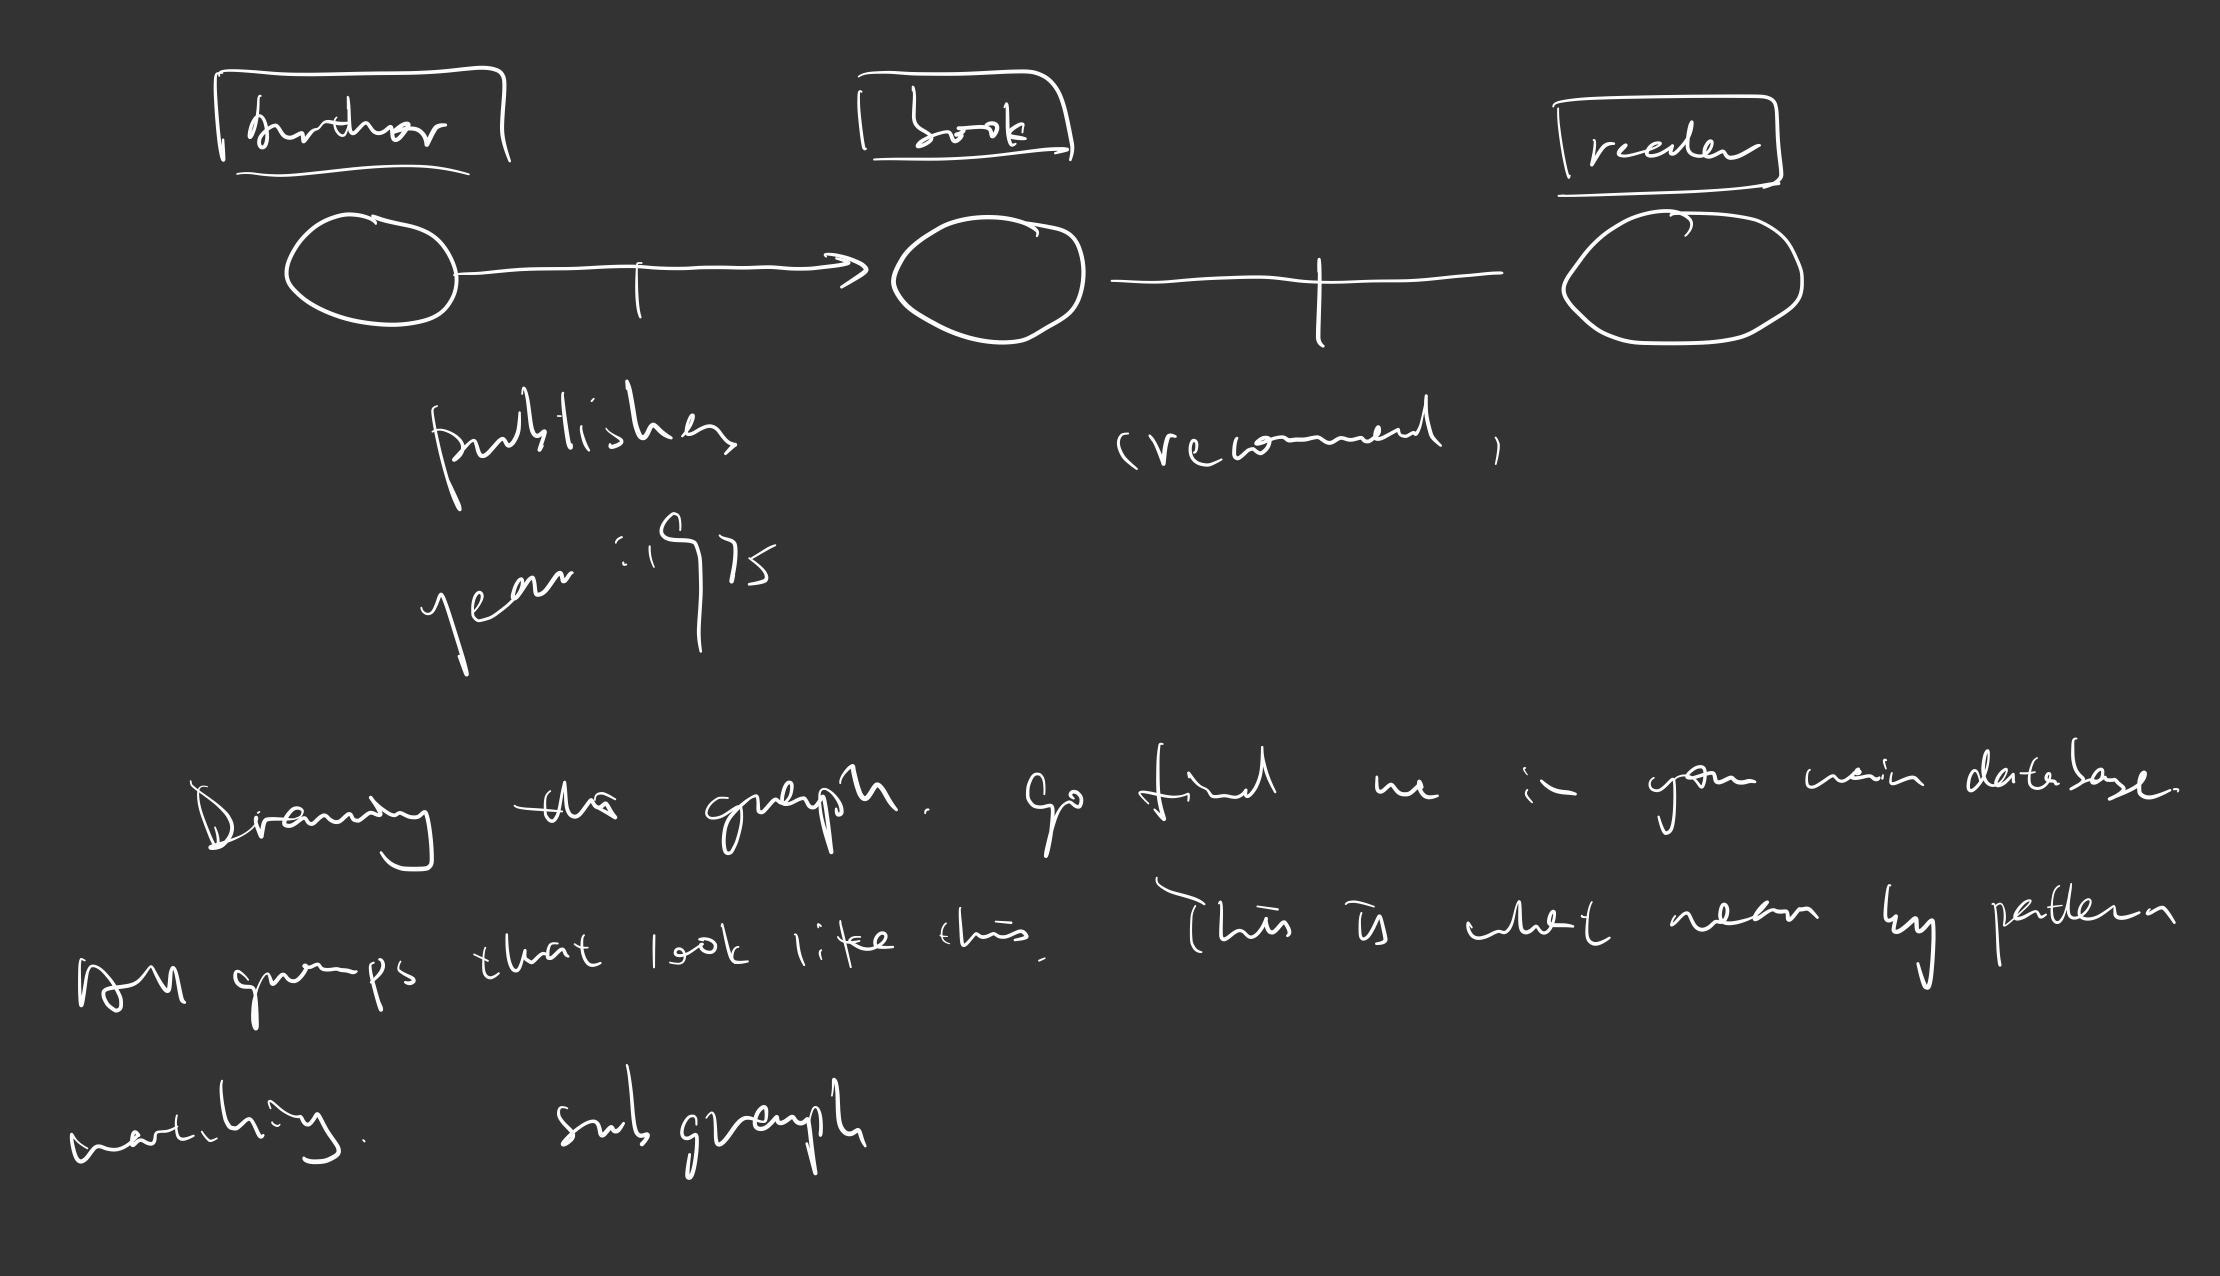 author book reader
publishes (recommend)
year : 1975
Drawing this graph. Go find me in your main database.
All groups that look like this. This is what mean by pattern
matching. subgraph